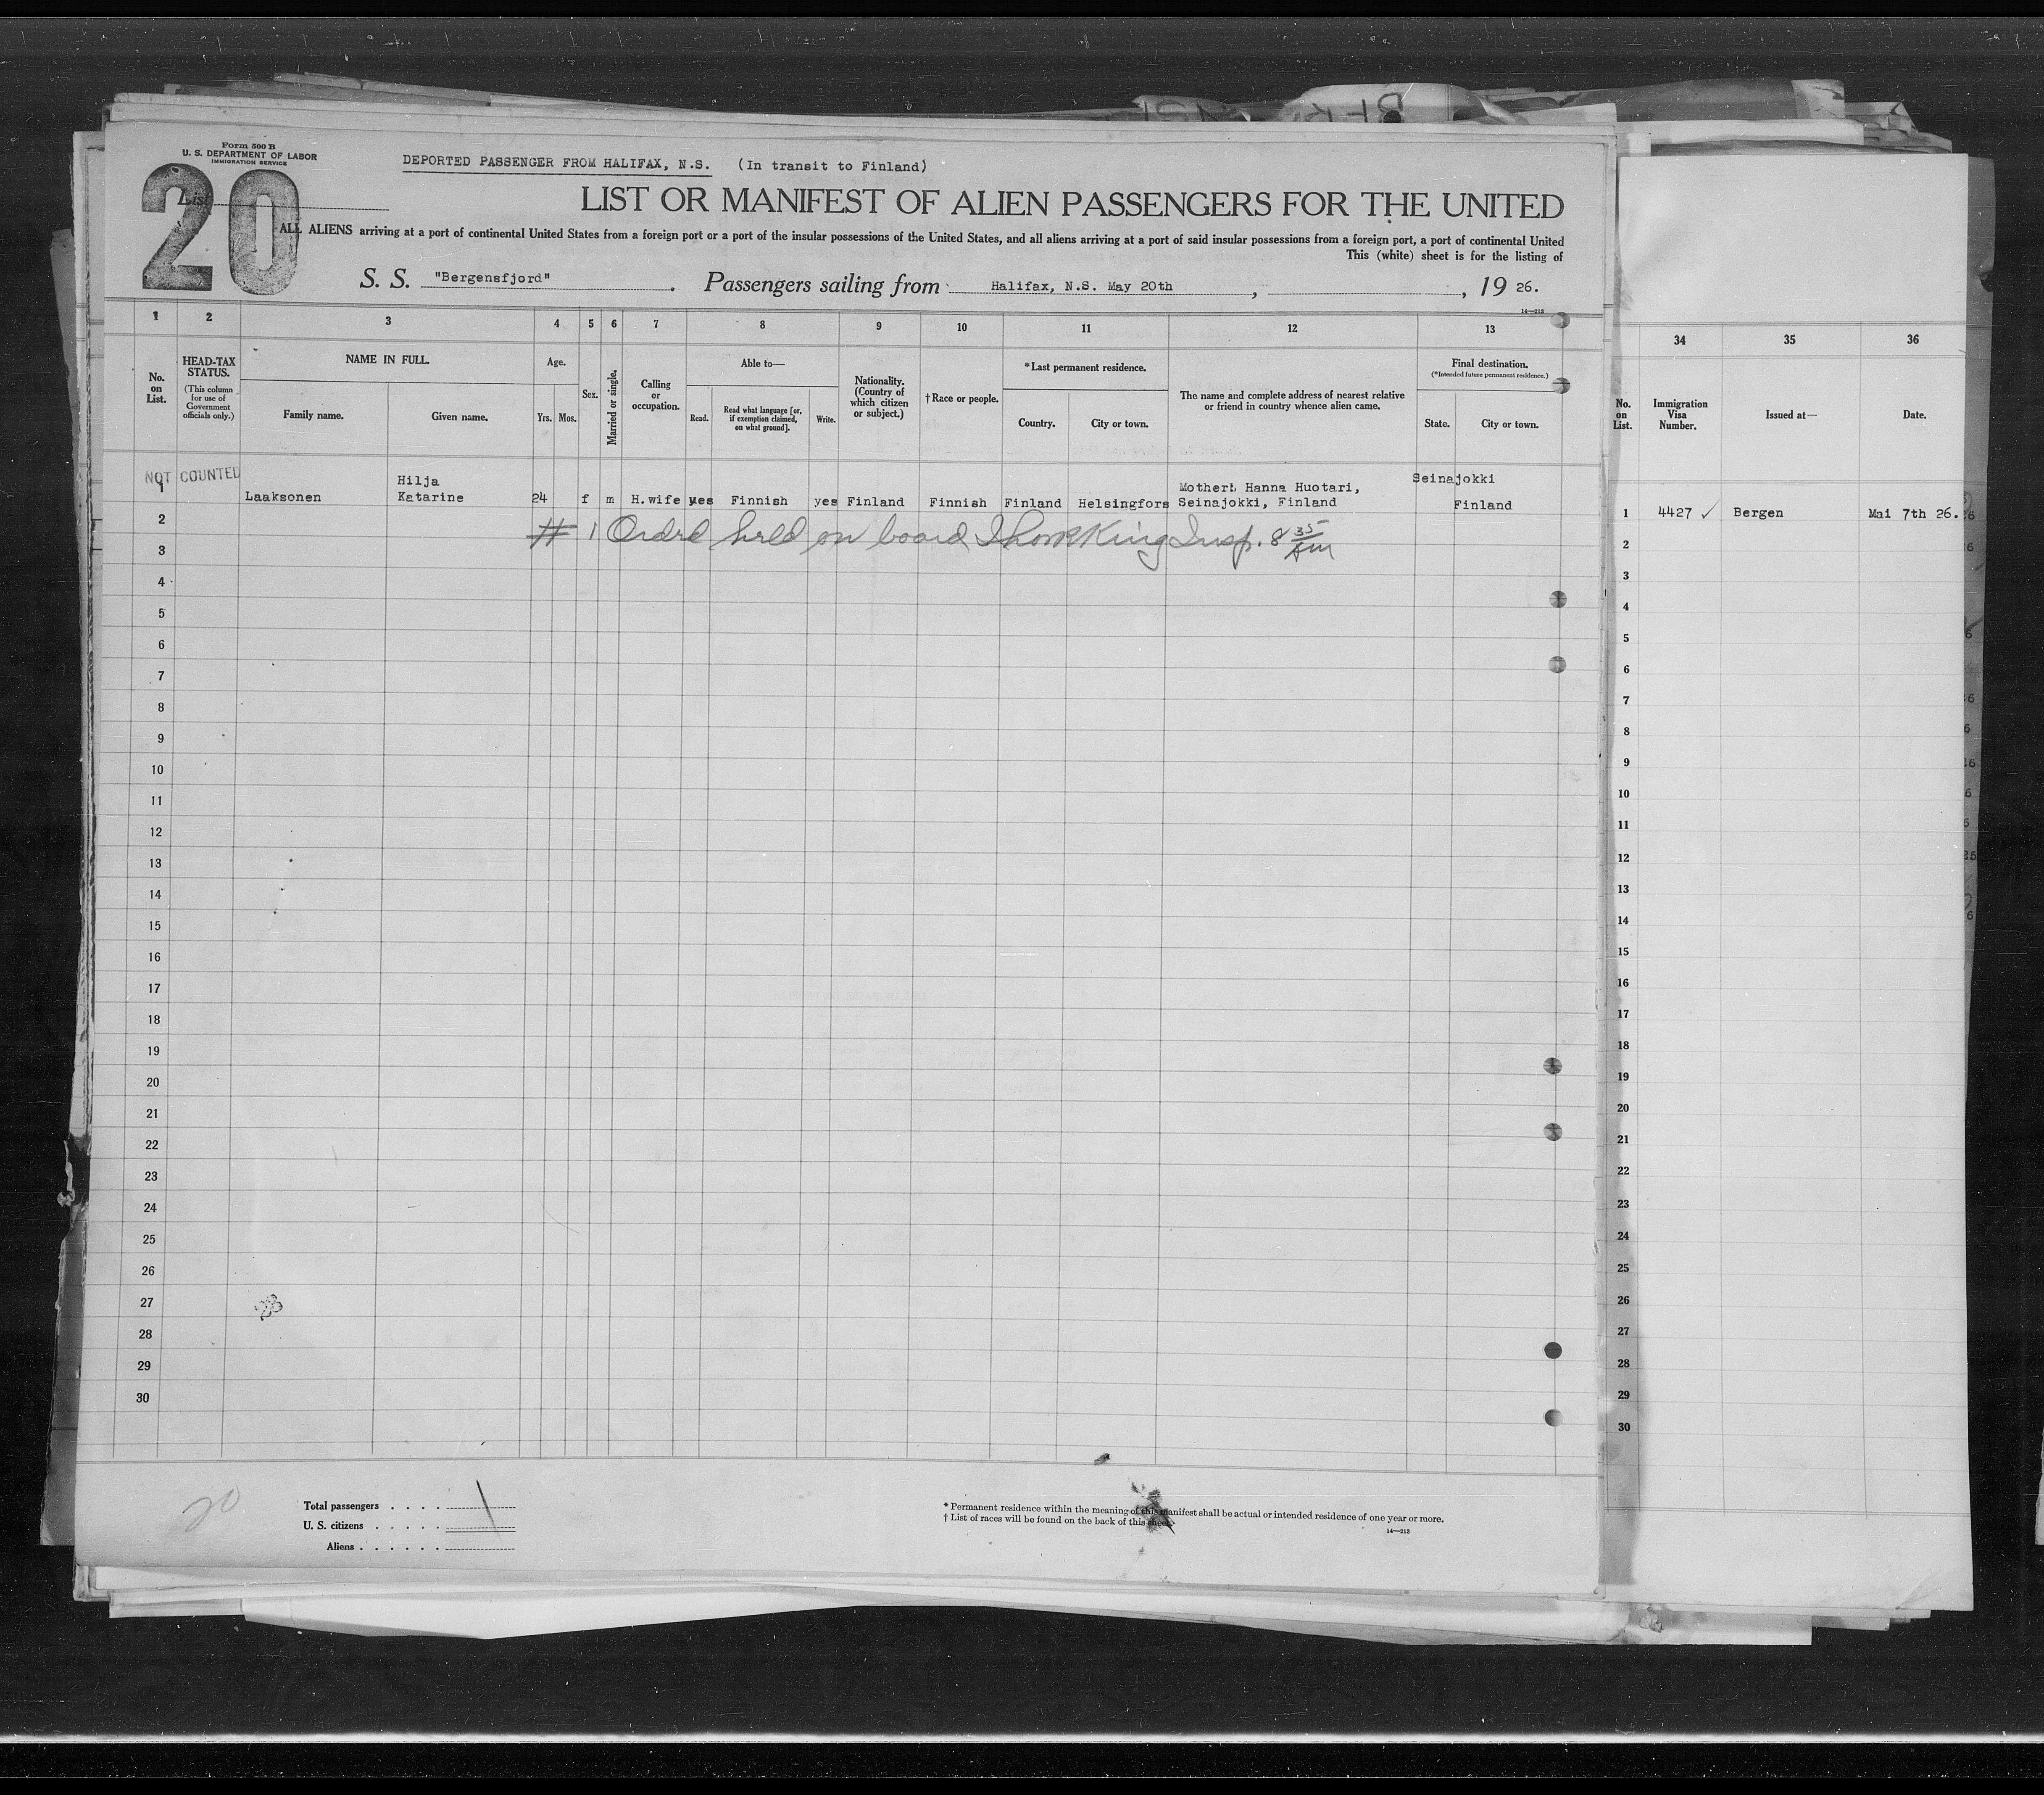 Form 500 B
U. S. DEPARTMENT OF LABOR
IMMIGRATION SERVICE
20
List
DEPORTED PASSENGER FROM HALIFAX, N.S. (In transit to Finland)
LIST OR MANIFEST OF ALIEN PASSENGERS FOR THE UNITED
ALL ALIENS arriving at a port of continental United States from a foreign port or a port of the insular possessions of the United States, and all aliens arriving at a port of said insular possessions from a foreign port, a port of continental United
This (white) sheet is for the listing of
S. S. "Bergensfjord" . Passengers sailing from Halifax, N.S. May 20th , , 19 26.
14—213
1 2 3 4 5 6 7 8 9 10 11 12 13
No. on List.
HEAD-TAX STATUS.
(This column for use of Government officials only.)
NAME IN FULL.
Family name. Given name.
Age.
Yrs. Mos.
Sex.
Married or single.
Calling or occupation.
Able to—
Read. Read what language [or, if exemption claimed, on what ground]. Write.
Nationality. (Country of which citizen or subject.)
† Race or people.
* Last permanent residence.
Country. City or town.
The name and complete address of nearest relative or friend in country whence alien came.
Final destination.
(* Intended future permanent residence.)
State. City or town.
34 35 36
No. on List.
Immigration Visa Number.
Issued at—
Date.
NOT COUNTED
Hilja Seinajokki
1 Laaksonen Katarine 24 f m H.wife yes Finnish yes Finland Finnish Finland Helsingfors Mother: Hanna Huotari, Seinajokki, Finland Finland
1 4427 ✓ Bergen Mai 7th 26.
# 1 Ordrd held on board King Insp. 8 35 Am
2
3
4
5
6
7
8
9
10
11
12
13
14
15
16
17
18
19
20
21
22
23
24
25
26
27
28
29
30
2
3
4
5
6
7
8
9
10
11
12
13
14
15
16
17
18
19
20
21
22
23
24
25
26
27
28
29
30
20
Total passengers . . . . 1
U. S. citizens . . . . .
Aliens . . . . . .
* Permanent residence within the meaning of this manifest shall be actual or intended residence of one year or more.
† List of races will be found on the back of this sheet.
14—213